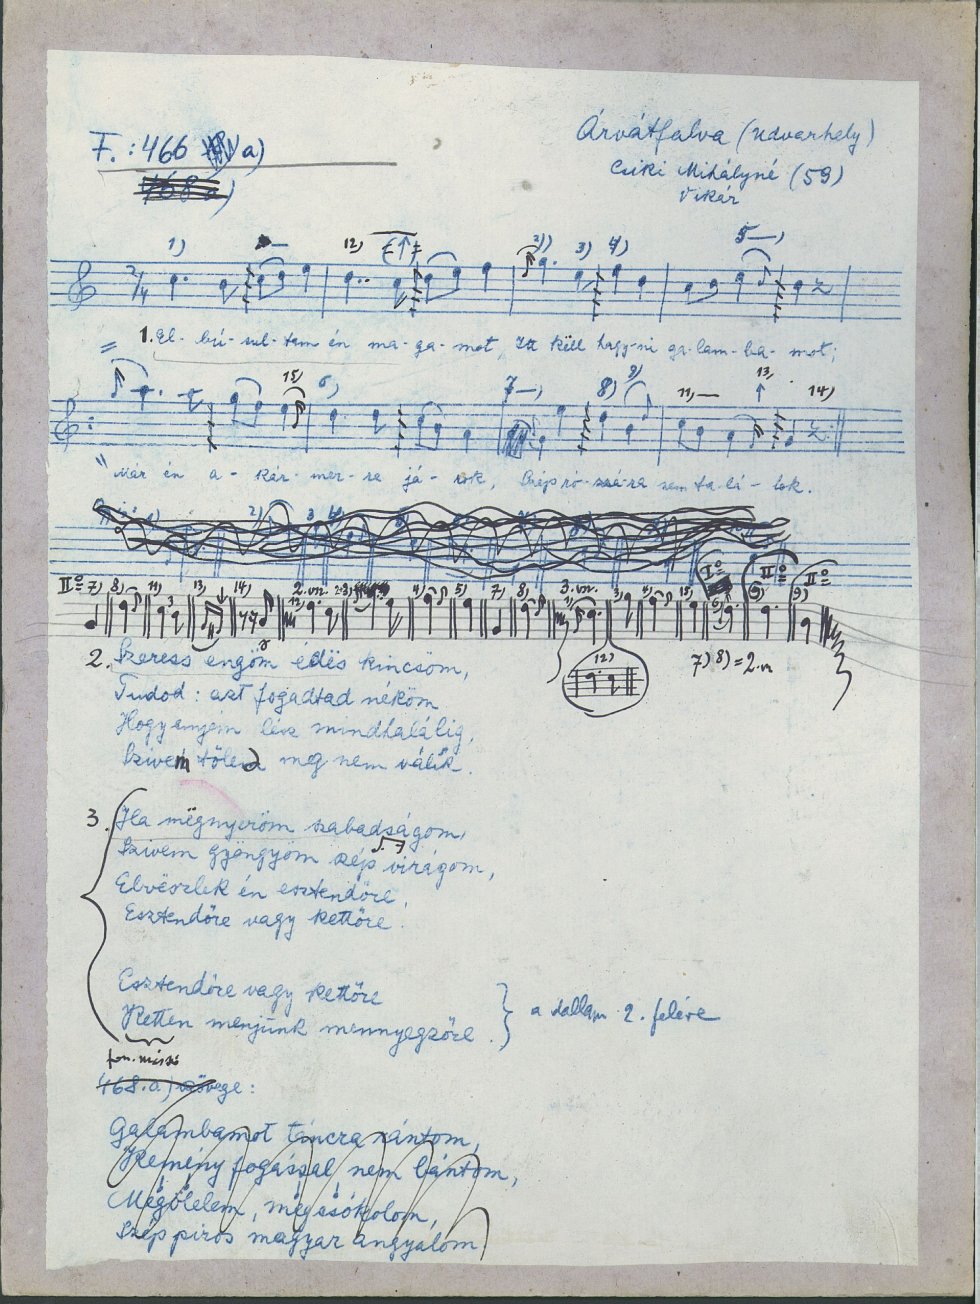 F.: 466 a)
468 a)
Árvátfalva (Udvarhely)
Csiki Mihályné (59)
Vikár
1) 12) 2) 3) 4) 5
2/4
1. El- bú- sul- tam én ma- ga- mot, Itt këll hagy- ni ga- lam- ba- mot;
15) 6) 7 8) 9) 11) 13) 14)
Már én a- kár- mer- re já- rok, Szép ró- zsá- ra nem ta- lá- lok.
II° 7) 8) 11) 13) 14) 2. vsz. 4) 5) 7) 8) 3. vsz. 3) 4) 15) I° II° 9) II° 9)
12)
7) 8) = 2. v
2. Szeress engöm édës kincsöm,
Tudod: azt fogadtad néköm
Hogy enyém lész mindhalálig,
Szivem tőled meg nem válik.
3. Ha mëgnyeröm szabadságom,
Szivem gyöngyöm szép virágom,
Elvëszlek én esztendőre,
Esztendőre vagy kettőre.
Esztendőre vagy kettőre
Ketten menjünk mennyegzőre.
a dallam 2. felére
fon.
468. a) szövege:
Galambamot táncra rántom,
Kemény fogással nem bántom,
Mëgölelem, mëgcsókolom,
Szép piros magyar angyalom